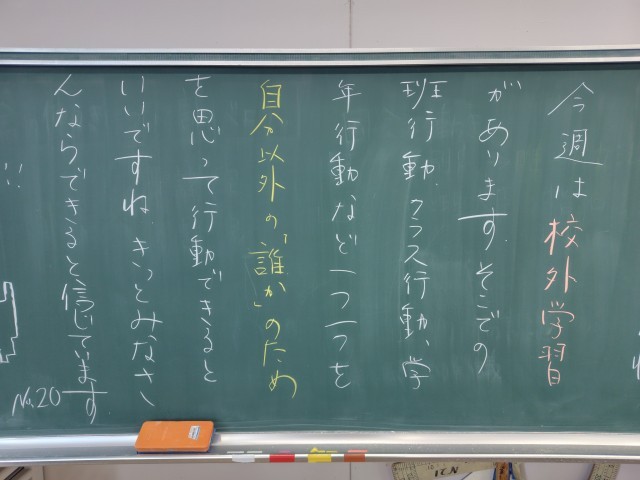 今週は校外学習
があります。そこでの
班行動、クラス行動、学
年行動など一つ一つを
自分以外の「誰か」のため
を思って行動できると
いいですね。きっとみなさ
んならできると信じています
No.20
!!